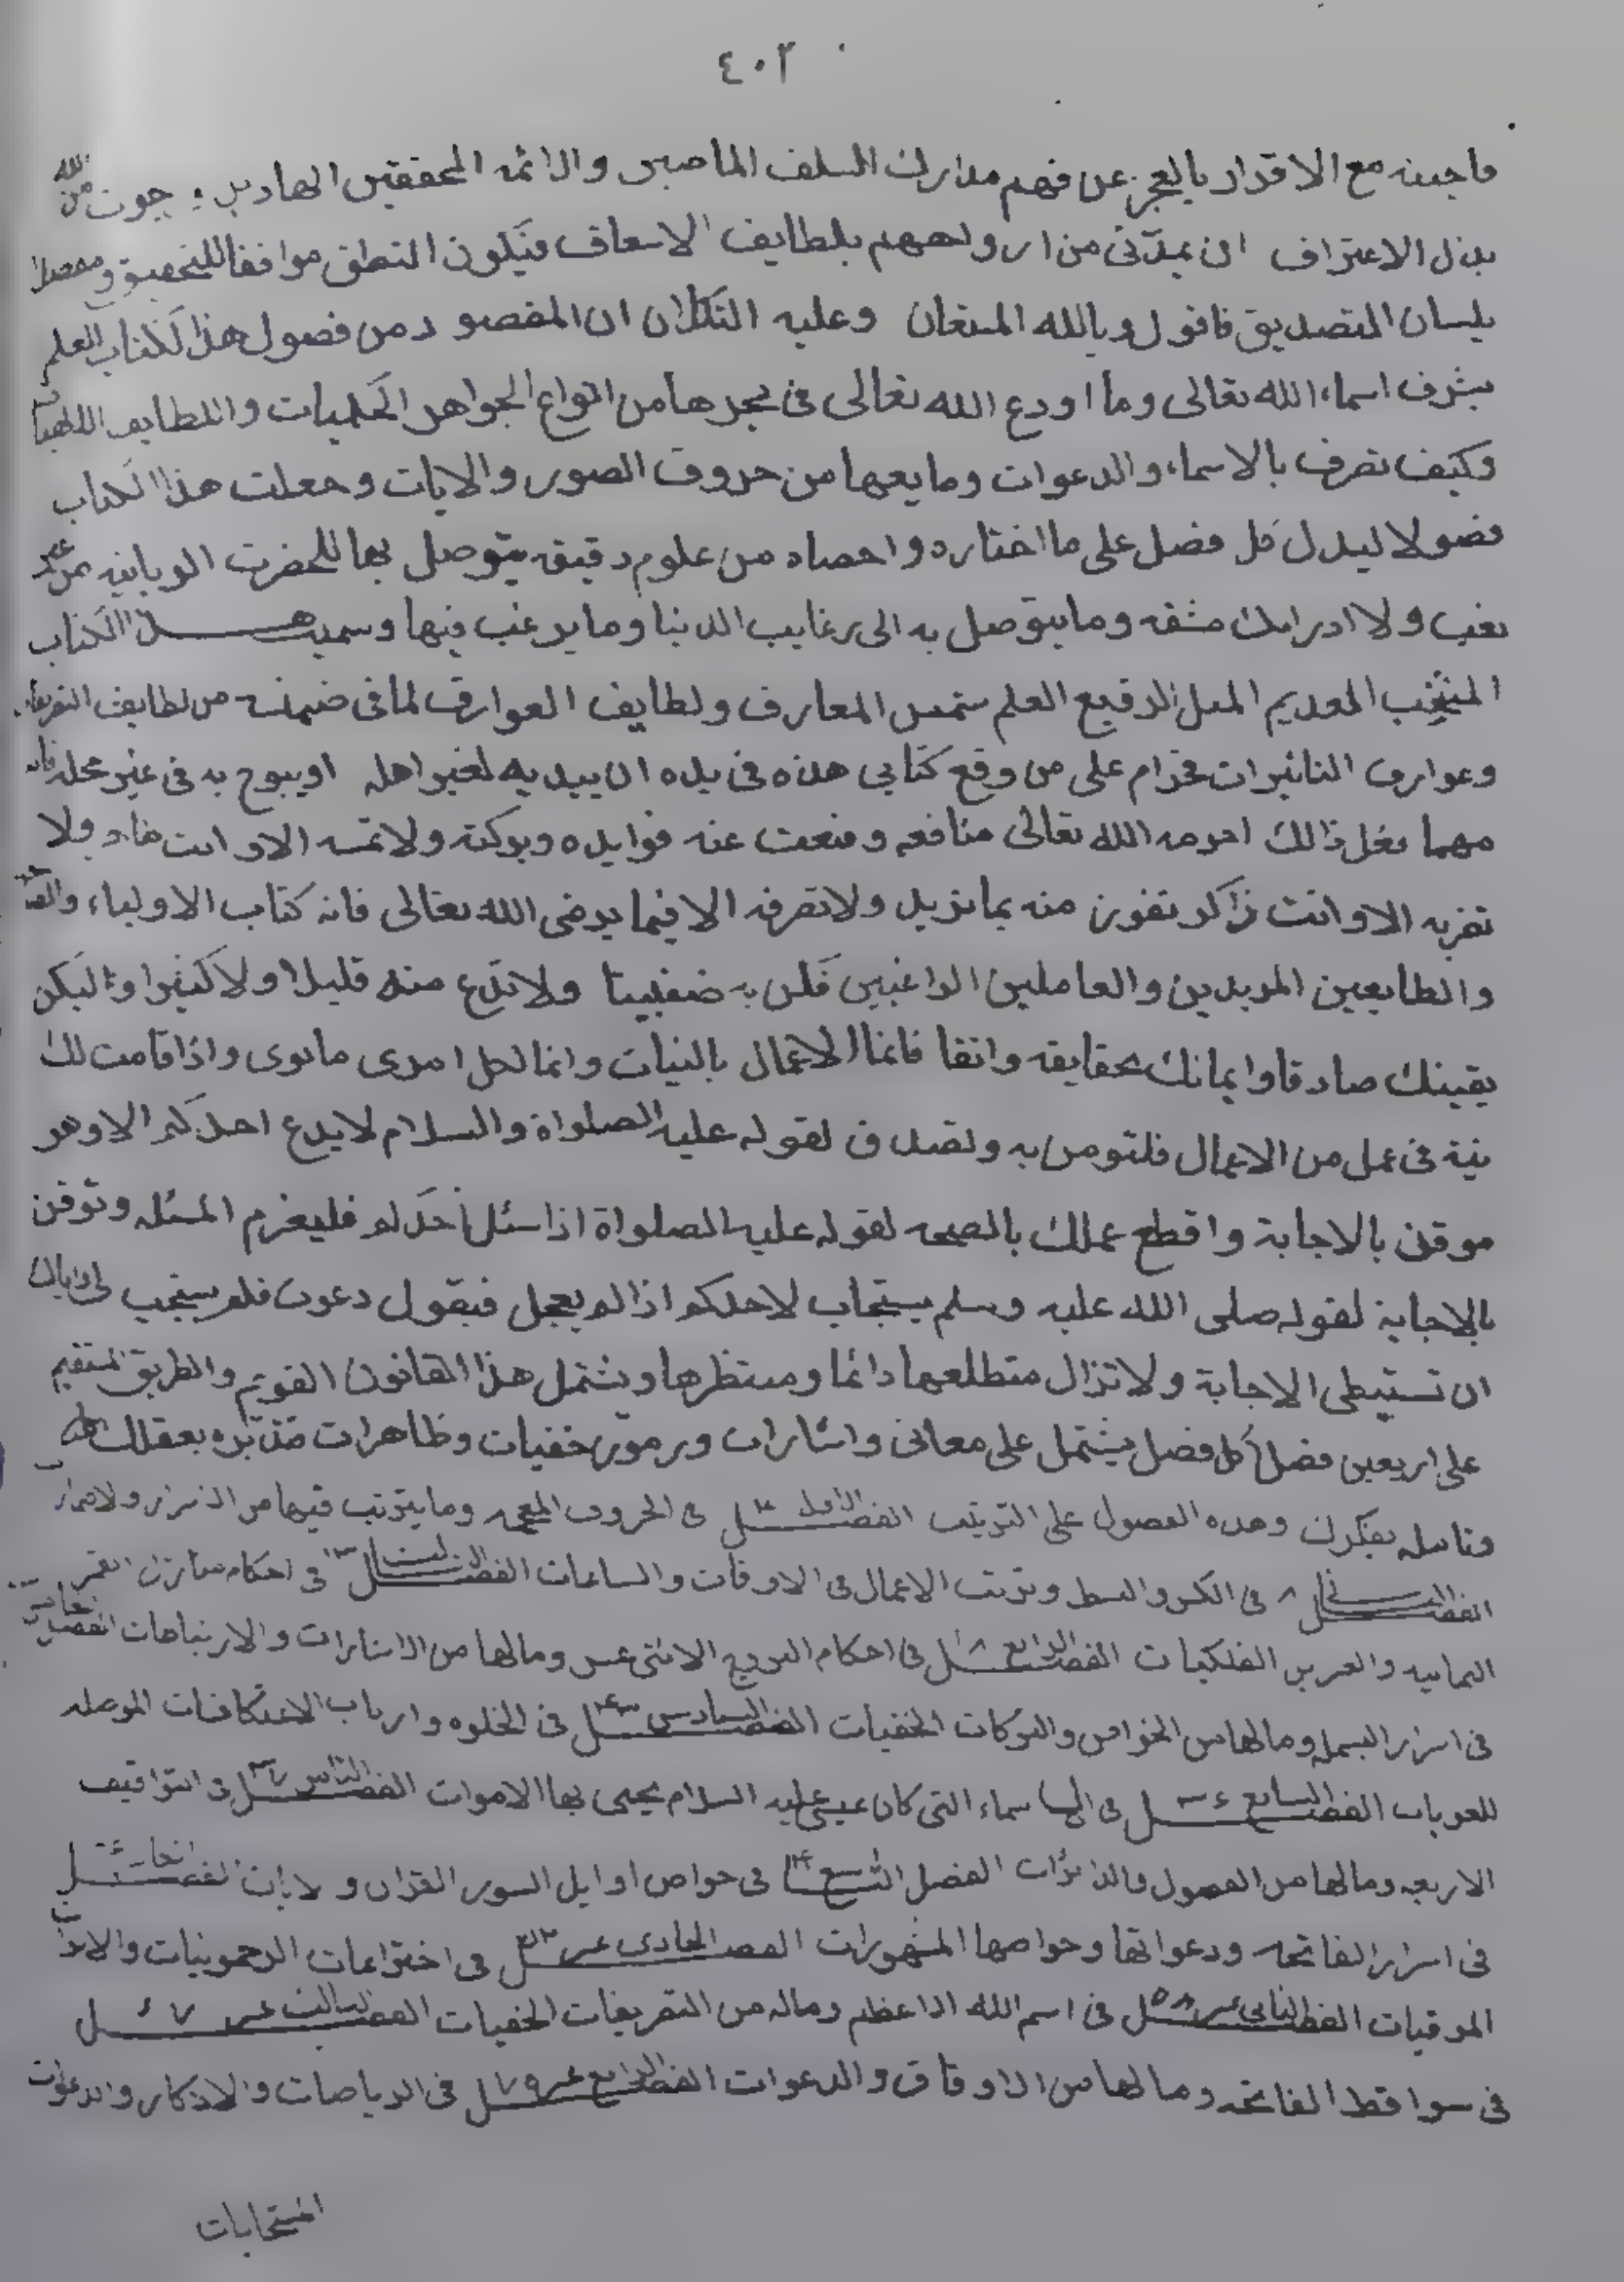 ٤٠٢
فاجبته مع الاقرار بالعجز عن فهم مدارك السلف الماضين والائمه المحققين الهادين رجوت من الله
بذل الاعتراف ان يمدنى من ارواحهم بلطايف الاسعاف فيكون النطق موافقا للتحقيق ومفصلا
بلسان التصديق فاقول وبالله المستعان وعليه التكلان ان المقصود من فصول هذا الكتاب العلم
بشرف اسماء الله تعالى وما اودع الله تعالى فى بحرها من انواع الجواهر الحكميات واللطايف الالهيات
وكيف تصرف بالاسماء والدعوات وما يعها من حروف الصور والايات وجعلت هذا الكتاب
فصولا ليدل كل فصل على ما اختاره واحصاه من علوم دقيقه يتوصل بها للحضرت الربانيه من غير
تعب ولا ادراك مشقه وما يتوصل به الى رغايب الدنيا وما يرغب فيها وسميت هذا الكتاب
المنتخب العديم المثل الرفيع العلم شمس المعارف ولطايف العوارف لما فى ضمنه من لطايف التصريفات
وعوارف التاثيرات فحرام على من وقع كتابى هذه فى يده ان يبديه لغير اهله او يبوح به فى غير محله فانه
مهما فعل ذالك احرمه الله تعالى منافعه ومنعت عنه فوايده وبركته ولا تمسه الا وانت طاهر ولا
تقربه الا وانت ذاكر تفوز منه بما تريد ولا تصرفه الا فيما يرضى الله تعالى فانه كتاب الاولياء
والطايعين المريدين والعاملين الراغبين فكن به ضنينا ولا تدع منه قليلا ولا كثيرا وليكن
يقينك صادقا وايمانك بحقايقه واثقا فانما الاعمال بالنيات وانما لكل امرى ما نوى واذا قامت لك
نية فى عمل من الاعمال فلتومن به وتصدق لقوله عليه الصلواة والسلام لا يدع احدكم الا وهو
موقن بالاجابة واقطع عملك بالصحه لقوله عليه الصلواة اذا سئل احدكم فليعزم المسئله وتوقن
بالاجابة لقوله صلى الله عليه وسلم يستجاب لاحدكم اذا لم يعجل فيقول دعوت فلم يستجيب لى واياك
ان تستبطى الاجابة ولا تزال متطلعها دائما ومنتظرها ويشتمل هذا القانون القويم والطريق المستقيم
على اربعين فصل كل فصل يشتمل على معانى واشارات ورموز خفيات وظاهرات فتدبره بعقلك
وتامله بفكرك وهذه الفصول على الترتيب الفصل الاول فى الحروف المعجمه وما يترتب فيها من الاسرار والاضمارات
الفصل الثانى فى الكسر والبسط وترتيب الاعمال فى الاوقات والساعات الفصل الثالث فى احكام منازل القمر
الثمانيه والعشرين الفلكيات الفصل الرابع فى احكام البروج الاثنى عشر ومالها من الاشارات والارتباطات الفصل الخامس
فى اسرار البسمله ومالها من الخواص والبركات الخفيات الفصل السادس فى الخلوه وارباب الاعتكافات الموصله
للعلويات الفصل السابع فى الاسماء التى كان عيسى عليه السلام يحيى بها الاموات الفصل الثامن فى التواقيف
الاربعه ومالها من الفصول والدائرات الفصل التاسع فى خواص اوايل السور القران والايات الفصل العاشر
فى اسرار الفاتحه ودعواتها وخواصها المشهورات الفصل الحادى عشر فى اختراعات الرحموتيات والانوار
المرقيات الفصل الثانى عشر فى اسم الله الاعظم وماله من التصريفات الخفيات الفصل الثالث عشر
فى سواقط الفاتحه ومالها من الاوفاق والدعوات الفصل الرابع عشر فى الرياضات والاذكار والدعوات
المستجابات